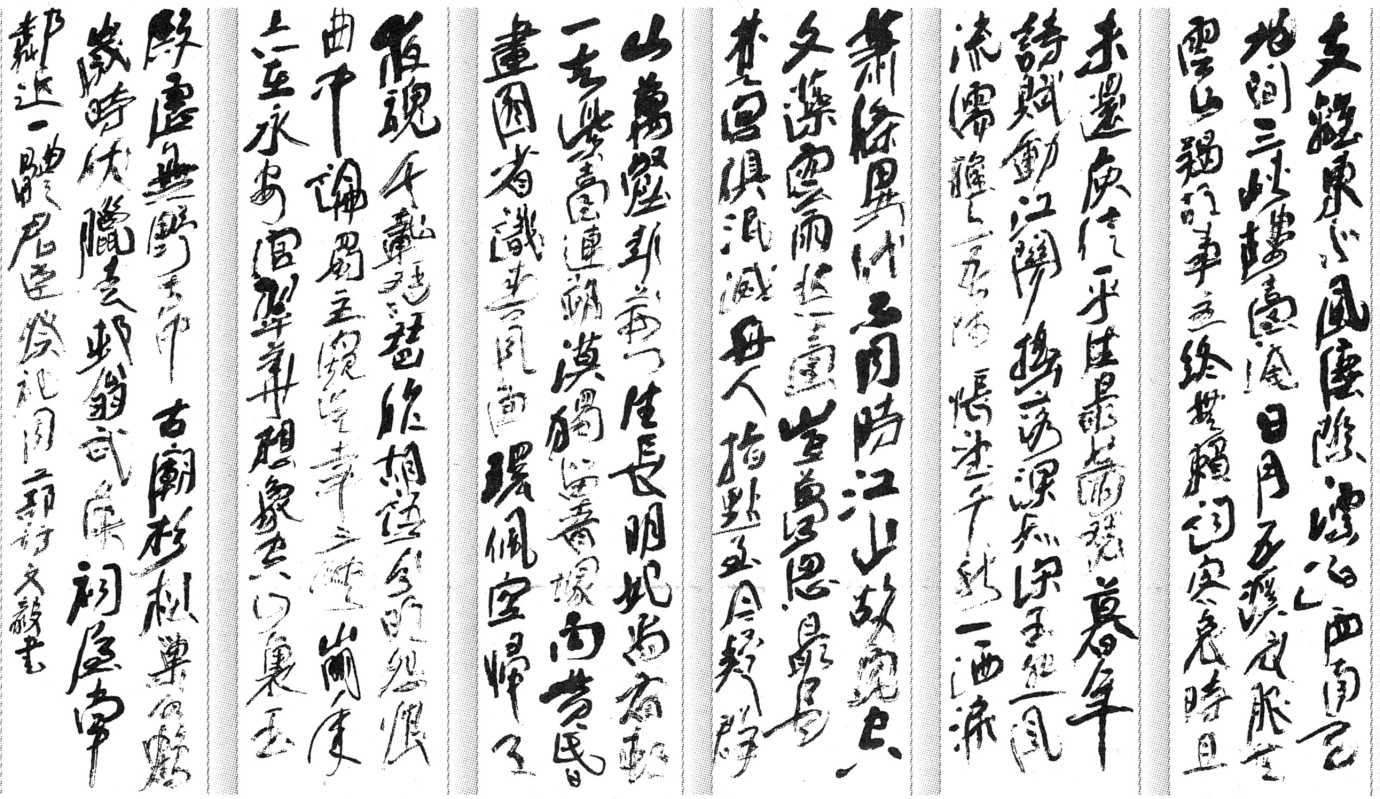 支離東北風塵際漂泊西南天
地間三峽樓臺淹日月五溪衣服共
雲山羯胡事主終無賴詞客哀時且
未還庾信平生最蕭瑟暮年
詩賦動江關搖落深知宋玉悲風
流儒雅亦吾師悵望千秋一洒淚
蕭條異代不同時江山故宅空
文藻雲雨荒臺豈夢思最是
楚宮俱泯滅舟人指點至今疑群
山萬壑赴荊門生長明妃尚有村
一去紫臺連朔漠獨留青塚向黃昏
畫圖省識春風面環佩空歸月
夜魂千載琵琶作胡語分明怨恨
曲中論蜀主窺吳幸三峽崩年
亦在永安宮翠華想像空山裏玉
殿虛無野寺中古廟杉松巢水鶴
歲時伏臘走村翁武侯祠屋常
鄰近一體君臣祭祀同工部詩文書